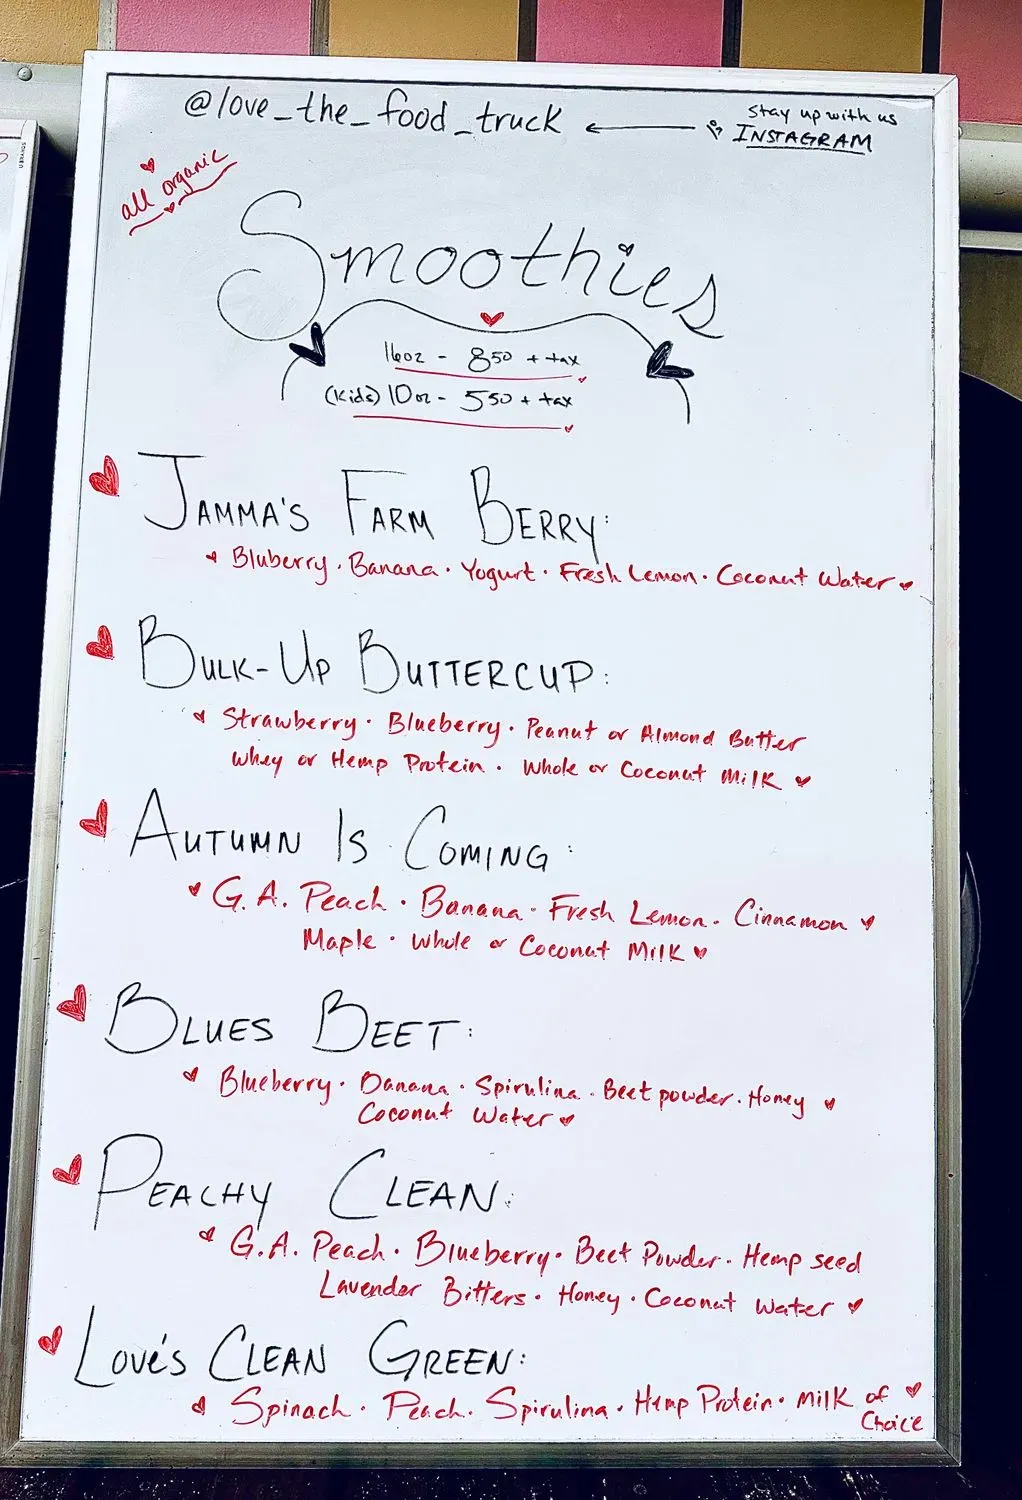 @love_the_food_truck
stay up with us
INSTAGRAM
all organic
Smoothies
16oz - 8⁵⁰ + tax
(kids) 10oz - 5⁵⁰ + tax
JAMMA'S FARM BERRY:
Bluberry · Banana · Yogurt · Fresh Lemon · Coconut Water
BULK-UP BUTTERCUP:
Strawberry · Blueberry · Peanut or Almond Butter
Whey or Hemp Protein · Whole or Coconut Milk
AUTUMN IS COMING:
G.A. Peach · Banana · Fresh Lemon · Cinnamon
Maple · Whole or Coconut Milk
BLUES BEET:
Blueberry · Banana · Spirulina · Beet powder · Honey
Coconut Water
PEACHY CLEAN:
G.A. Peach · Blueberry · Beet Powder · Hemp seed
Lavender Bitters · Honey · Coconut Water
LOVE'S CLEAN GREEN:
Spinach · Peach · Spirulina · Hemp Protein · Milk of
Choice